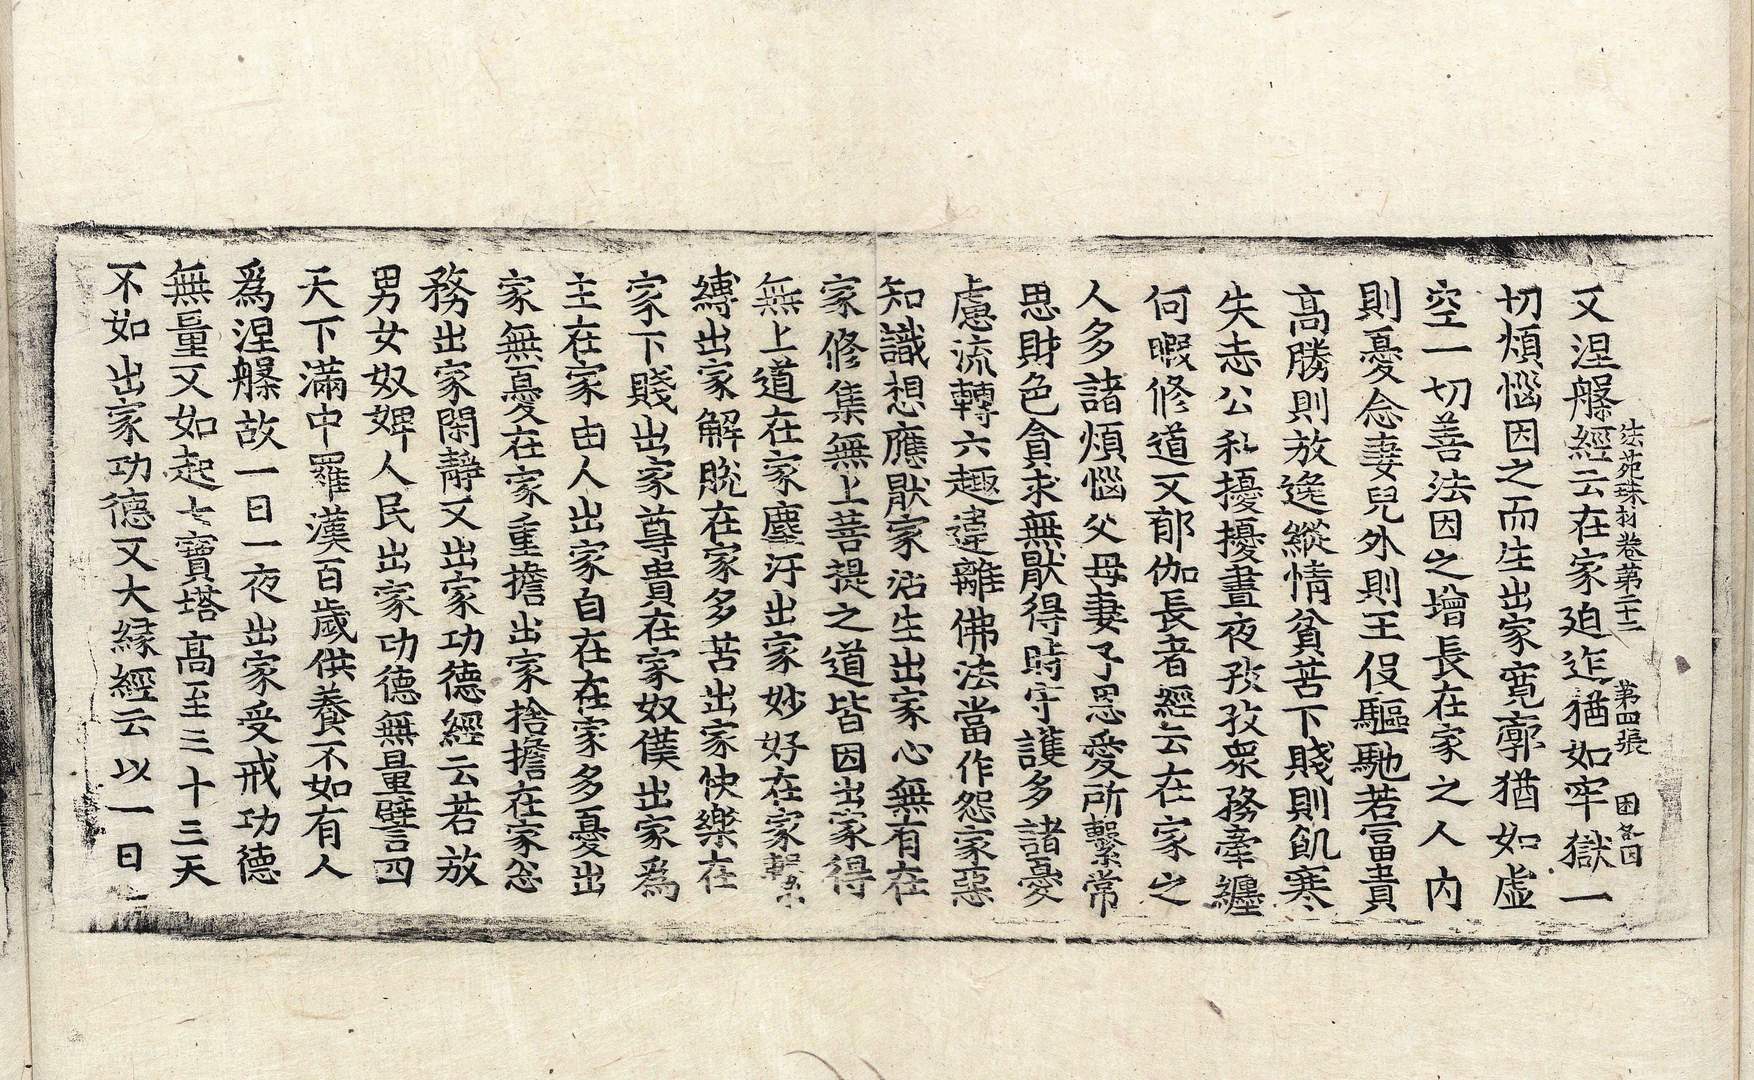 法苑珠林卷第二十二 第四張 困
又涅槃經云在家迫迮猶如牢獄一
切煩惱因之而生出家寬廓猶如虛
空一切善法因之增長在家之人內
則憂念妻兒外則王役驅馳若富貴
高勝則放逸縱情貧苦下賤則飢寒
失志公私擾擾晝夜孜孜衆務牽纏
何暇修道又郁伽長者經云在家之
人多諸煩惱父母妻子恩愛所繫常
思財色貪求無猒得時守護多諸憂
慮流轉六趣違離佛法當作怨家惡
知識想應猒家活生出家心無有在
家修集無上菩提之道皆因出家得
無上道在家塵汙出家妙好在家繫
縛出家解脫在家多苦出家快樂在
家下賤出家尊貴在家奴僕出家爲
主在家由人出家自在在家多憂出
家無憂在家重擔出家捨擔在家忩
務出家閑靜又出家功德經云若放
男女奴婢人民出家功德無量譬四
天下滿中羅漢百歲供養不如有人
爲涅槃故一日一夜出家受戒功德
無量又如起七寶塔高至三十三天
不如出家功德又大緣經云以一日